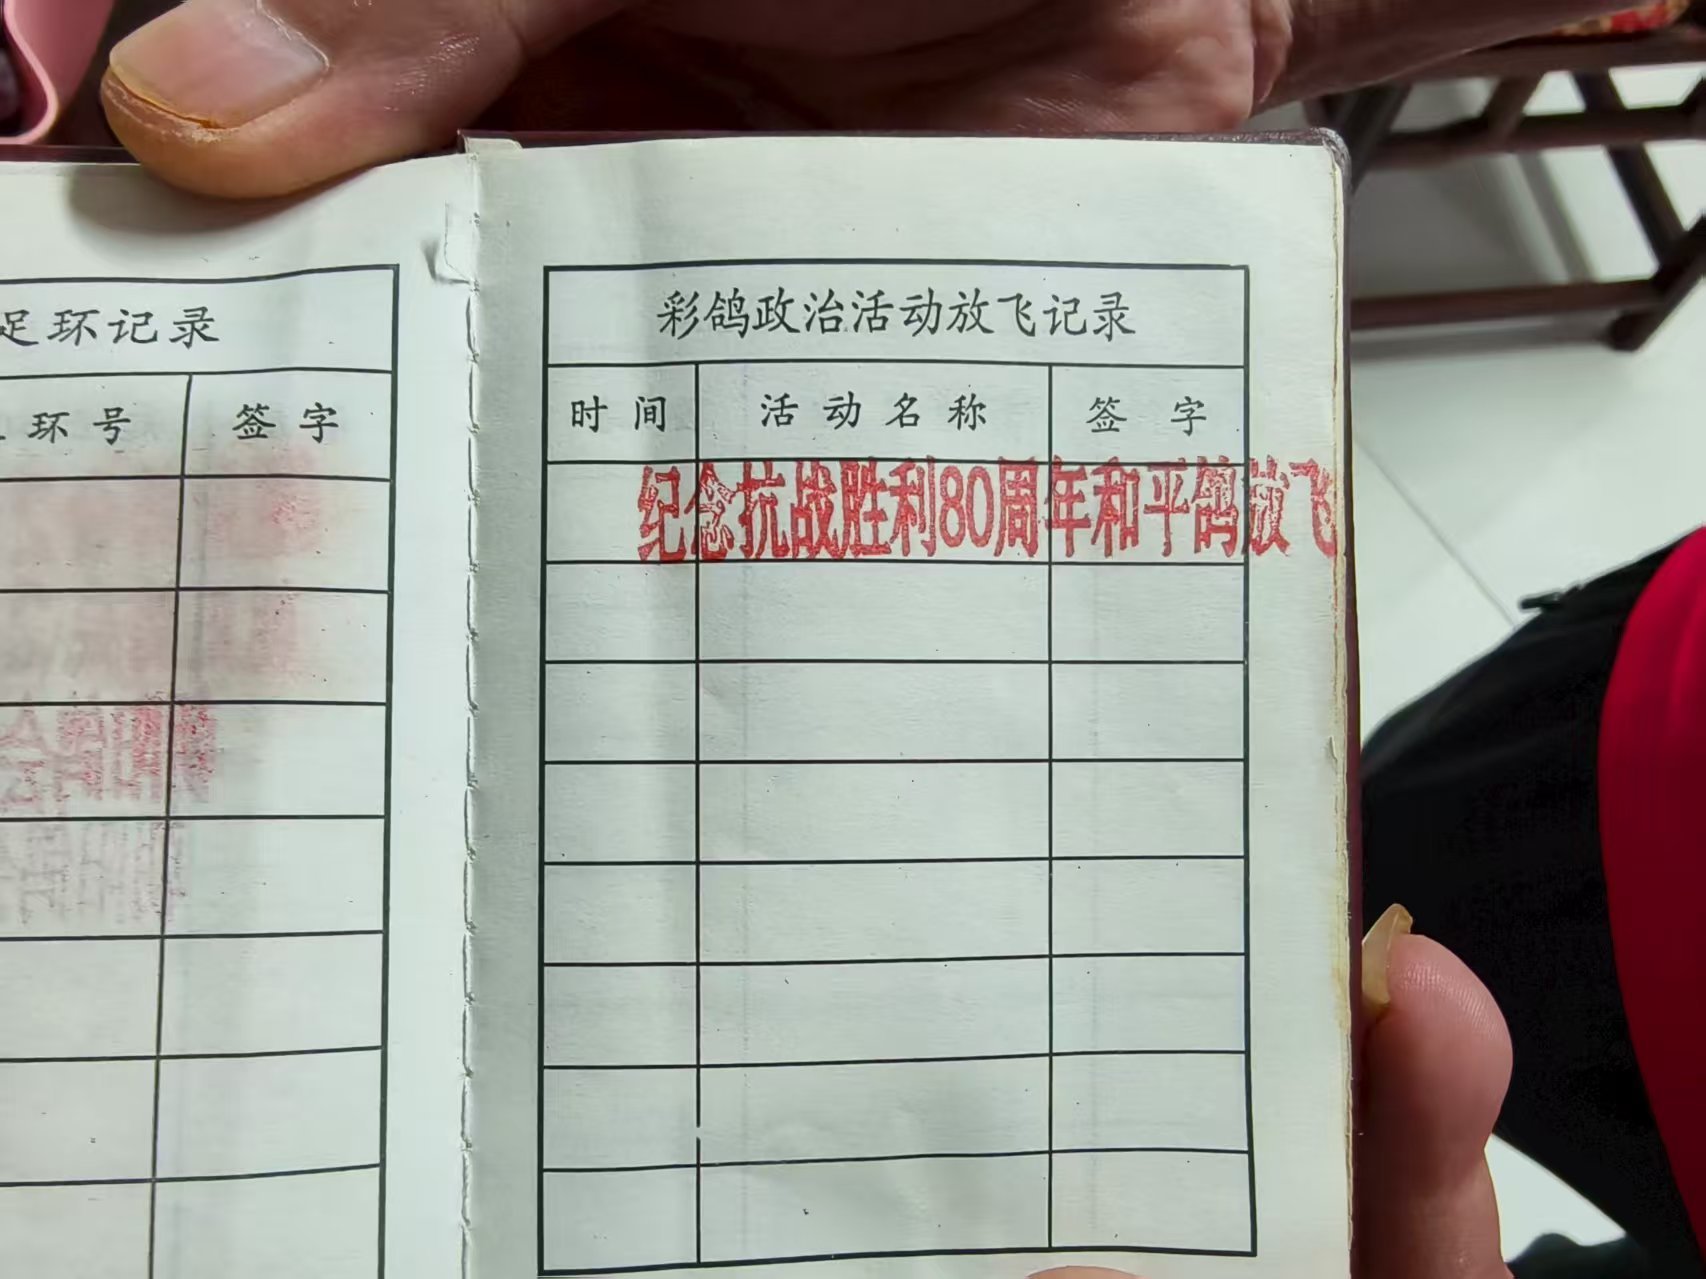 足环记录
环号 签字
彩鸽政治活动放飞记录
时间 活动名称 签字
纪念抗战胜利80周年和平鸽放飞